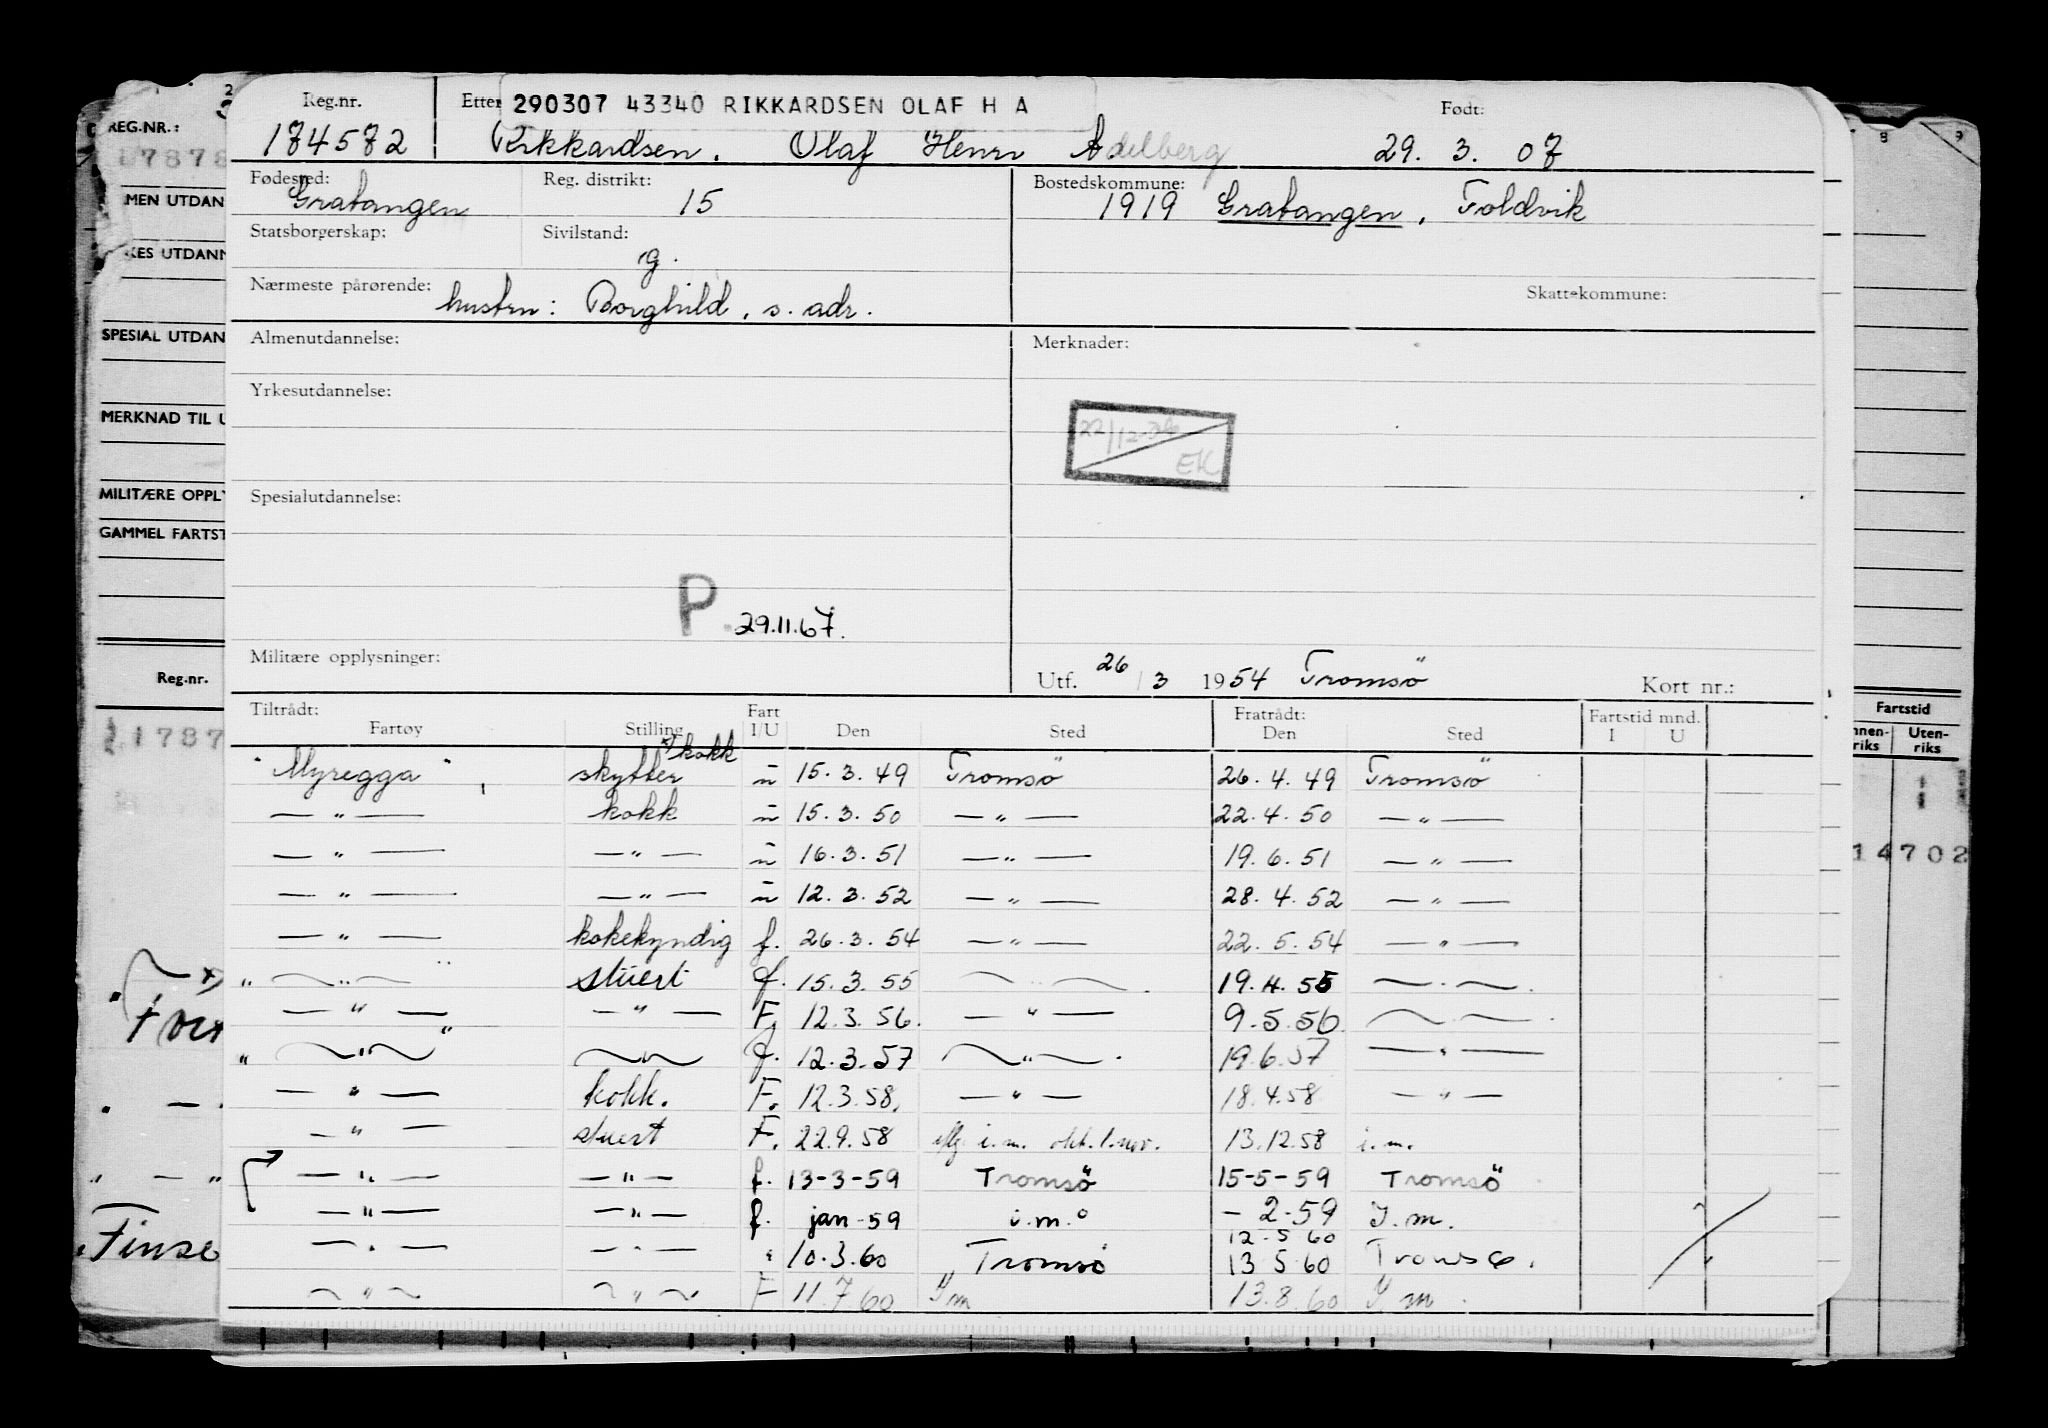 Reg.nr. Etter 290307 43340 RIKKARDSEN OLAF H A Født:
174572 Rikkardsen, Olaf Henri Adelberg 29. 3. 07
Fødested: Gratangen Reg. distrikt: 15 Bostedskommune: 1919 Gratangen, Foldvik
Statsborgerskap: Sivilstand: g.
Nærmeste pårørende: hustru: Borghild, s. adr. Skattekommune:
Almenutdannelse: Merknader:
Yrkesutdannelse:
22/12-54 EK
Spesialutdannelse:
P. 29.11.67.
Militære opplysninger: Utf. 26/3 1954 Tromsö Kort nr.:
Tiltrådt: Fart Fratrådt: Fartstid mnd.
Fartøy Stilling I/U Den Sted Den Sted I U
"Myregga", skytter x) kokk u 15.3.49 Tromsö 26.4.49 Tromsö
— " — kokk u 15.3.50 — " — 22.4.50 — " —
— " — — " — u 16.3.51 — " — 19.6.51 — " —
— " — — " — u 12.3.52 — " — 28.4.52 — " —
— " — kokekyndig f. 26.3.54 — " — 22.5.54 — " —
" — " — " stuert f. 15.3.55 — " — . 19.4.55 — " — .
— " — — " — F. 12.3.56. — " — 9.5.56. — " —
" — " — " — " — f. 12.3.57 — " — . 19.6.57 — " —
— " — kokk. F. 12.3.58. — " — 18.4.58 — " —
— " — stuert F. 22.9.58 i.m. okt. 1. nov. 13.12.58 i.m.
— " — — " — f. 13-3-59 Tromsö 15-5-59 Tromsö
— " — — " — f. jan-59 i.m. - 2-59 I.m.
12-5 60
— " — — " — " 10.3.60 Tromsö 13 5 60 Tromsø. "
— " — — " — F 11.7.60 I m 13.8.60 I m.
REG.NR.:
17878
MEN UTDAN
KES UTDANN
SPESIAL UTDAN
MERKNAD TIL U
MILITÆRE OPPLY
GAMMEL FARTST
Reg.nr.
1787
Finse
8 9
Fartstid
nnen-riks Uten-riks
14702